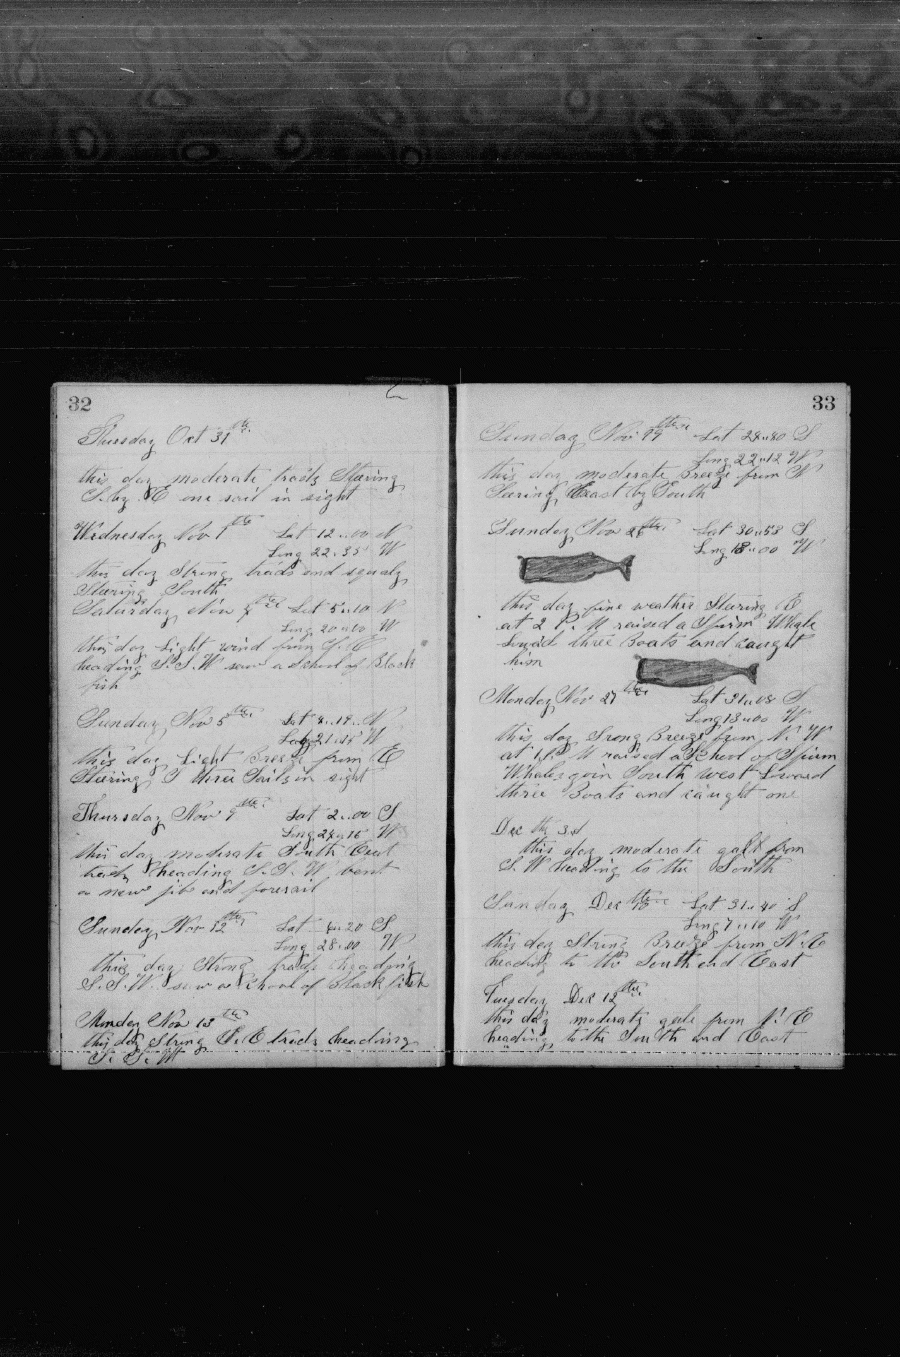 32
Thursday Oct 31 the
this day moderate trads Steering
S. by E one sail in sight
Wednesday Nov 1 the Lat 12..00 N
Long 22..35' W
this day Strong trads and squaly
Steering South
Saturday Nov 4 the Lat 5..10 N
Long 20..00 W
this day Light wind from S. E
heading S. S. W saw a School of Black
fish
Sunday Nov 5 the Lat 4..14.. N
Long 21..18' W
this day Light Breeze from E
Steering S three Sails in sight
Thursday Nov 9 the Lat 2..00 S
Long 24..16' W
this day moderate South East
trads heading S. S. W, bent
a new jib and foresail
Sunday Nov 12 the Lat 20 S
Long 28..00 W
this day Strong trads heading
S. S. W. saw a School of Black fish
Monday Nov 13 the
this day Strong S. E trads heading
S. S. W
33
Sunday Nov 19 the Lat S
Long 22..12 W
this day moderate Breeze from N
Steering East by South
Sunday Nov 26 the Lat 30..53 S
Long 18..00 W
this day fine weather Steering E
at 2 P. M raised a Spirm Whale
Lowed three Boats and caught
him
Monday Nov 27 the Lat 31..08 S
Long 13..00 W
this day Strong Breeze from N. W
at 1 P. M raised a School of Spirm
Whales goin South west Lowerd
three Boats and caught one
Dec the 3d
this day moderate galt from
S. W heading to the South
Sunday Dec the 10 Lat 31..40 S
Long 7..10 W
this day Strong Breeze from N. E
heading to the South and East
Tuesday Dec 12 the
this day moderate gale from N. E
heading to the South and East